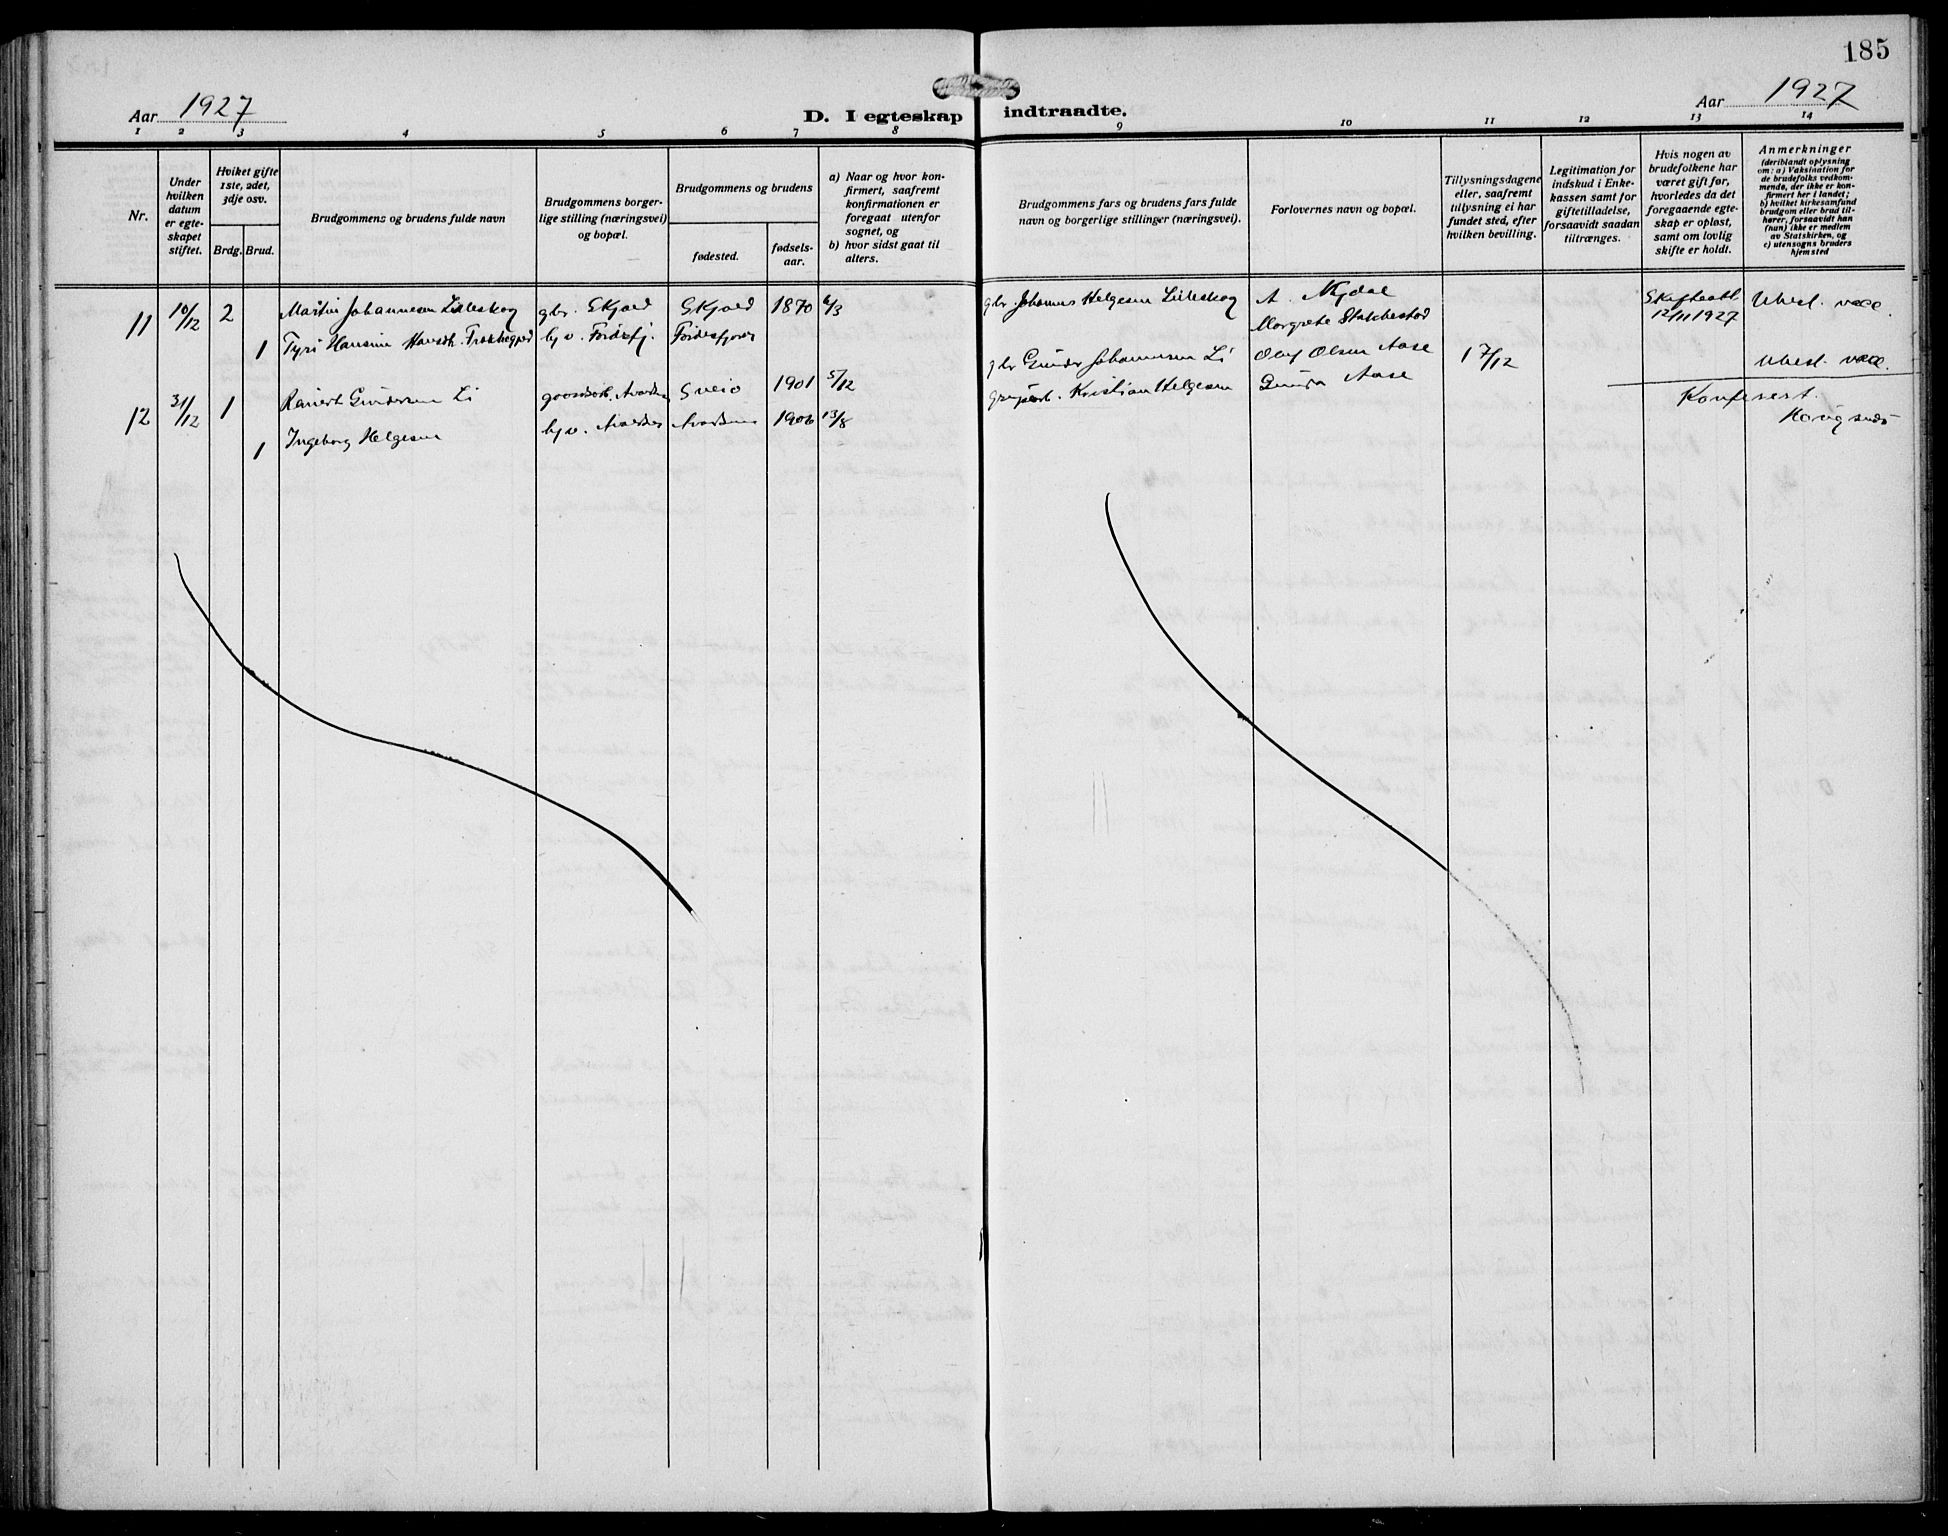 185
Aar 1927
D. I egteskap indtraadte.
Aar 1927
1 2 3 4 5 6 7 8 9 10 11 12 13 14
Nr.
Under
hvilken
datum
er egte-
skapet
stiftet.
Hviket gifte
1ste, 2det,
3dje osv.
Brdg. Brud.
Brudgommens og brudens fulde navn
Brudgommens borger-
lige stilling (næringsvei)
og bopæl.
Brudgommens og brudens
fødested.
fødsels-
aar.
a) Naar og hvor kon-
firmert, saafremt
konfirmationen er
foregaat utenfor
sognet, og
b) hvor sidst gaat til
alters.
Brudgommens fars og brudens fars fulde
navn og borgerlige stillinger (næringsvei).
Forlovernes navn og bopæl.
Tillysningsdagene
eller, saafremt
tillysning ei har
fundet sted, efter
hvilken bevilling.
Legitimation for
indskud i Enke-
kassen samt for
giftetilladelse,
forsaavidt saadan
tiltrænges.
Hvis nogen av
brudefolkene har
været gift før,
hvorledes da det
foregaaende egte-
skap er opløst,
samt om lovlig
skifte er holdt.
Anmerkninger
(deriblandt oplysning
om: a) Vaksination for
de brudefolks vedkom-
mende, der ikke er kon-
firmert her i landet;
b) hvilket kirkesamfund
brudgom eller brud til-
hører, forsaavidt han
(hun) ikke er medlem
av Statskirken, og
c) utensogns bruders
hjemsted
11 10/12 2 Martin Johannesen Lilleskog gbr. Skjold Skjold 1870 gbr. Johannes Helgesen Lilleskog A. Nydal Skifteatt. Ubesl. vacc.
12/11 1927
1 Tyri Hansine Førdesfj. Førdesfjord Margrete Stakkestad
gbr Gunder Johannesen Li Olaf Olsen Aase 17/12 Ubesl. vacc.
12 31/12 1 Reinert Gundersen Li Sveio 1901 5/12 Kristian Helgesen Gunda Aase
Konfesert.
1 Ingeborg Helgesen Avaldsnes Avaldsnes 1906 13/8